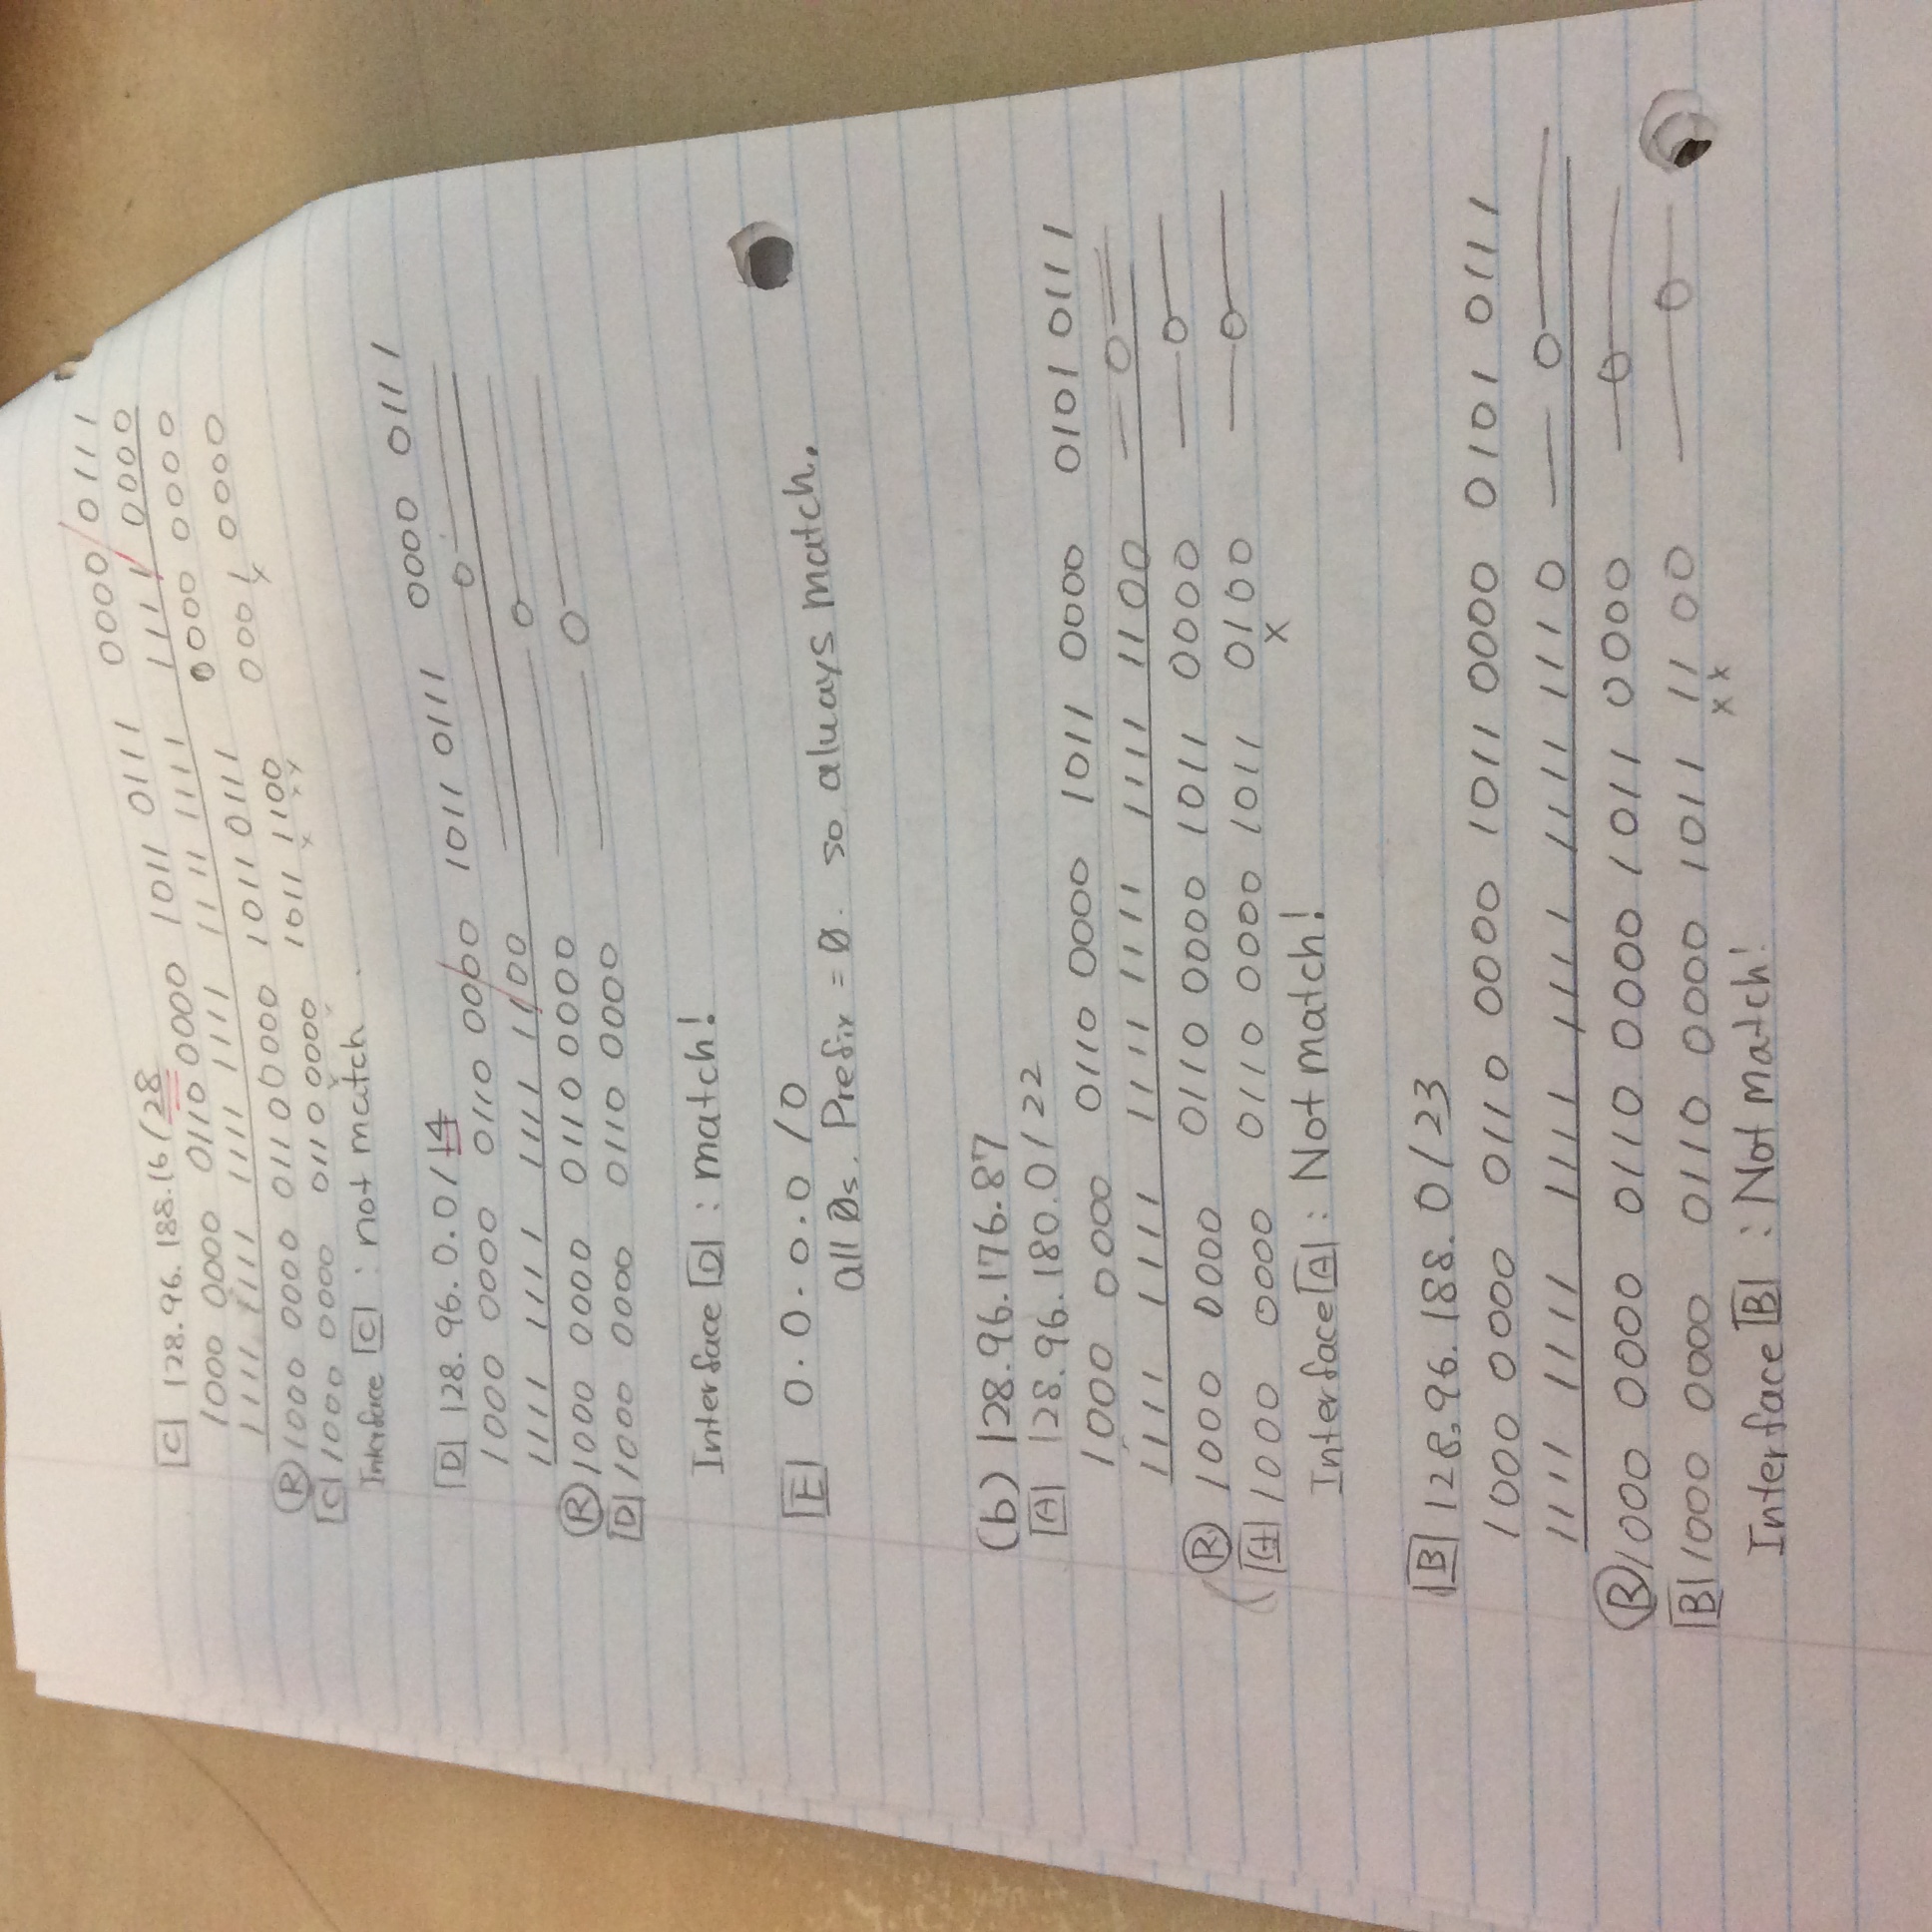 [C] 128.96.188.16/28
1000 0000 0110 0000 1011 0111 0000 0111
1111 1111 1111 1111 1111 1111 1111 0000
(R) 1000 0000 0110 0000 1011 0111 0000 0000
[C] 1000 0000 0110 0000 1011 1100 0001 0000
x x x x
Interface [C] : not match
[D] 128.96.0.0/14
1000 0000 0110 0000 1011 0111 0000 0111
1111 1111 1111 1100 — 0 —
(R) 1000 0000 0110 0000 — 0 —
[D] 1000 0000 0110 0000 — 0 —
Interface [D] : match!
[E] 0.0.0.0/0
all Øs. Prefix = Ø. so always match.
(b) 128.96.176.87
[A] 128.96.180.0/22
1000 0000 0110 0000 1011 0000 0101 0111
1111 1111 1111 1111 1111 1100 — 0 —
(R) 1000 0000 0110 0000 1011 0000 — 0 —
[A] 1000 0000 0110 0000 1011 0100 — 0 —
x
Interface [A] : Not match!
[B] 128.96.188.0/23
1000 0000 0110 0000 1011 0000 0101 0111
1111 1111 1111 1111 1111 1110 — 0 —
(R) 1000 0000 0110 0000 1011 0000 — 0 —
[B] 1000 0000 0110 0000 1011 1100 — 0 —
x x
Interface [B] : Not match!